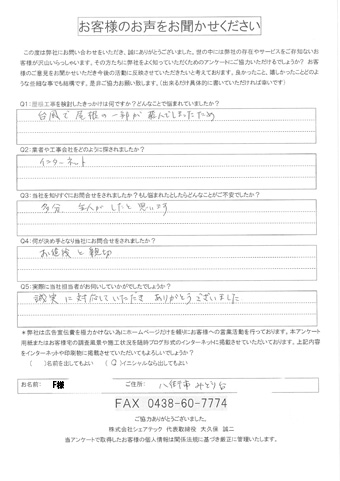 お客様のお声をお聞かせください
この度は弊社にお問い合わせをいただき、誠にありがとうございました。世の中には弊社の存在やサービスをご存知ないお
客様が沢山いらっしゃいます。その方たちに弊社をよく知っていただくためのアンケートにご協力いただけるでしょうか？ お客
様のご意見をお聞かせいただき今後の活動に反映させていただきたいと考えております。良かったこと、嬉しかったことどのよ
うな些細な事でも結構です。是非ご協力お願い致します。（出来るだけ具体的に書いていただければ幸いです）
Q1：屋根工事を検討したきっかけは何ですか？どんなことで悩まれていましたか？
台風で屋根の一部が飛んでしまったため
Q2：業者や工事会社をどのように探されましたか？
インターネット
Q3：当社を知りすぐにお問合せをされましたか？もし悩まれたとしたらどんなことがご不安でしたか？
多分 したと思います
Q4：何が決め手となり当社にお問合せをされましたか？
と親切
Q5：実際に当社担当者がお伺いしていかがでしたでしょうか？
誠実に対応していただき ありがとうございました
＊弊社は広告宣伝費を極力かけない為にホームページだけを頼りにお客様への営業活動を行っております。本アンケート
用紙またはお客様宅の調査風景や施工状況を随時ブログ形式のインターネットに掲載させていただいております。上記内容
をインターネットや印刷物に掲載させていただいてもよろしいでしょうか？
（　）名前を出してもよい （○）イニシャルなら出してもよい
お名前： F様 ご住所： 八街市 みどり台
FAX 0438-60-7774
ご協力ありがとうございました。
株式会社シェアテック 代表取締役 大久保 誠二
当アンケートで取得したお客様の個人情報は関係法規に基づき厳正に管理いたします。